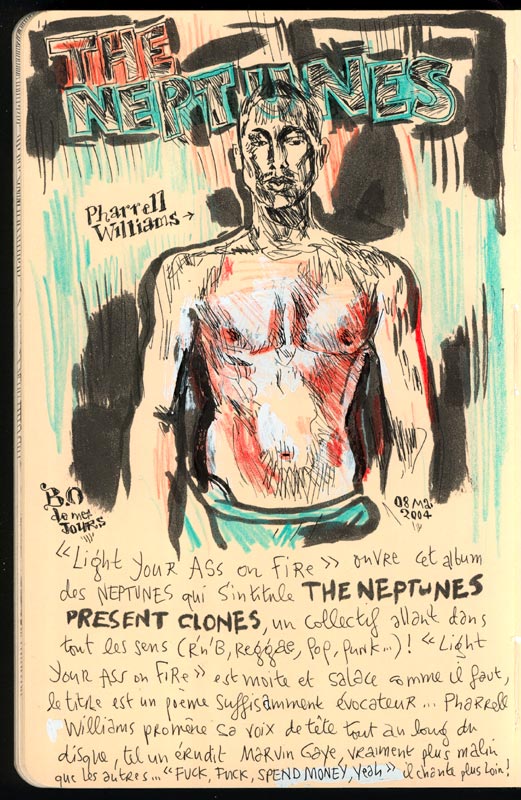 THE
NEPTUNES
Pharrell
Williams →
B.O
de mes
JOURS
08 Mai
2004
"Light Your Ass on Fire" ouvre cet album
des NEPTUNES qui s'intitule THE NEPTUNES
PRESENT CLONES, un collectif allant dans
tout les sens (R'n'B, Reggae, Pop, punk...)! "Light
Your Ass on Fire" est moite et salace comme il faut,
le titre est un poème suffisamment évocateur... Pharrell
Williams promène sa voix de tête tout au long du
disque, tel un érudit Marvin Gaye, vraiment plus malin
que les autres... "FUCK, FUCK, SPEND MONEY, Yeah" il chante plus loin!